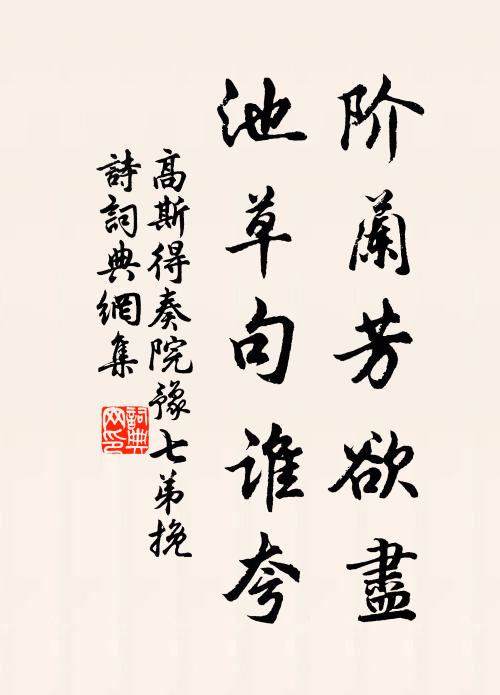 阶蘭芳欲盡
池草句谁夸
高斯得奏院豫七弟挽
詩詞典網集